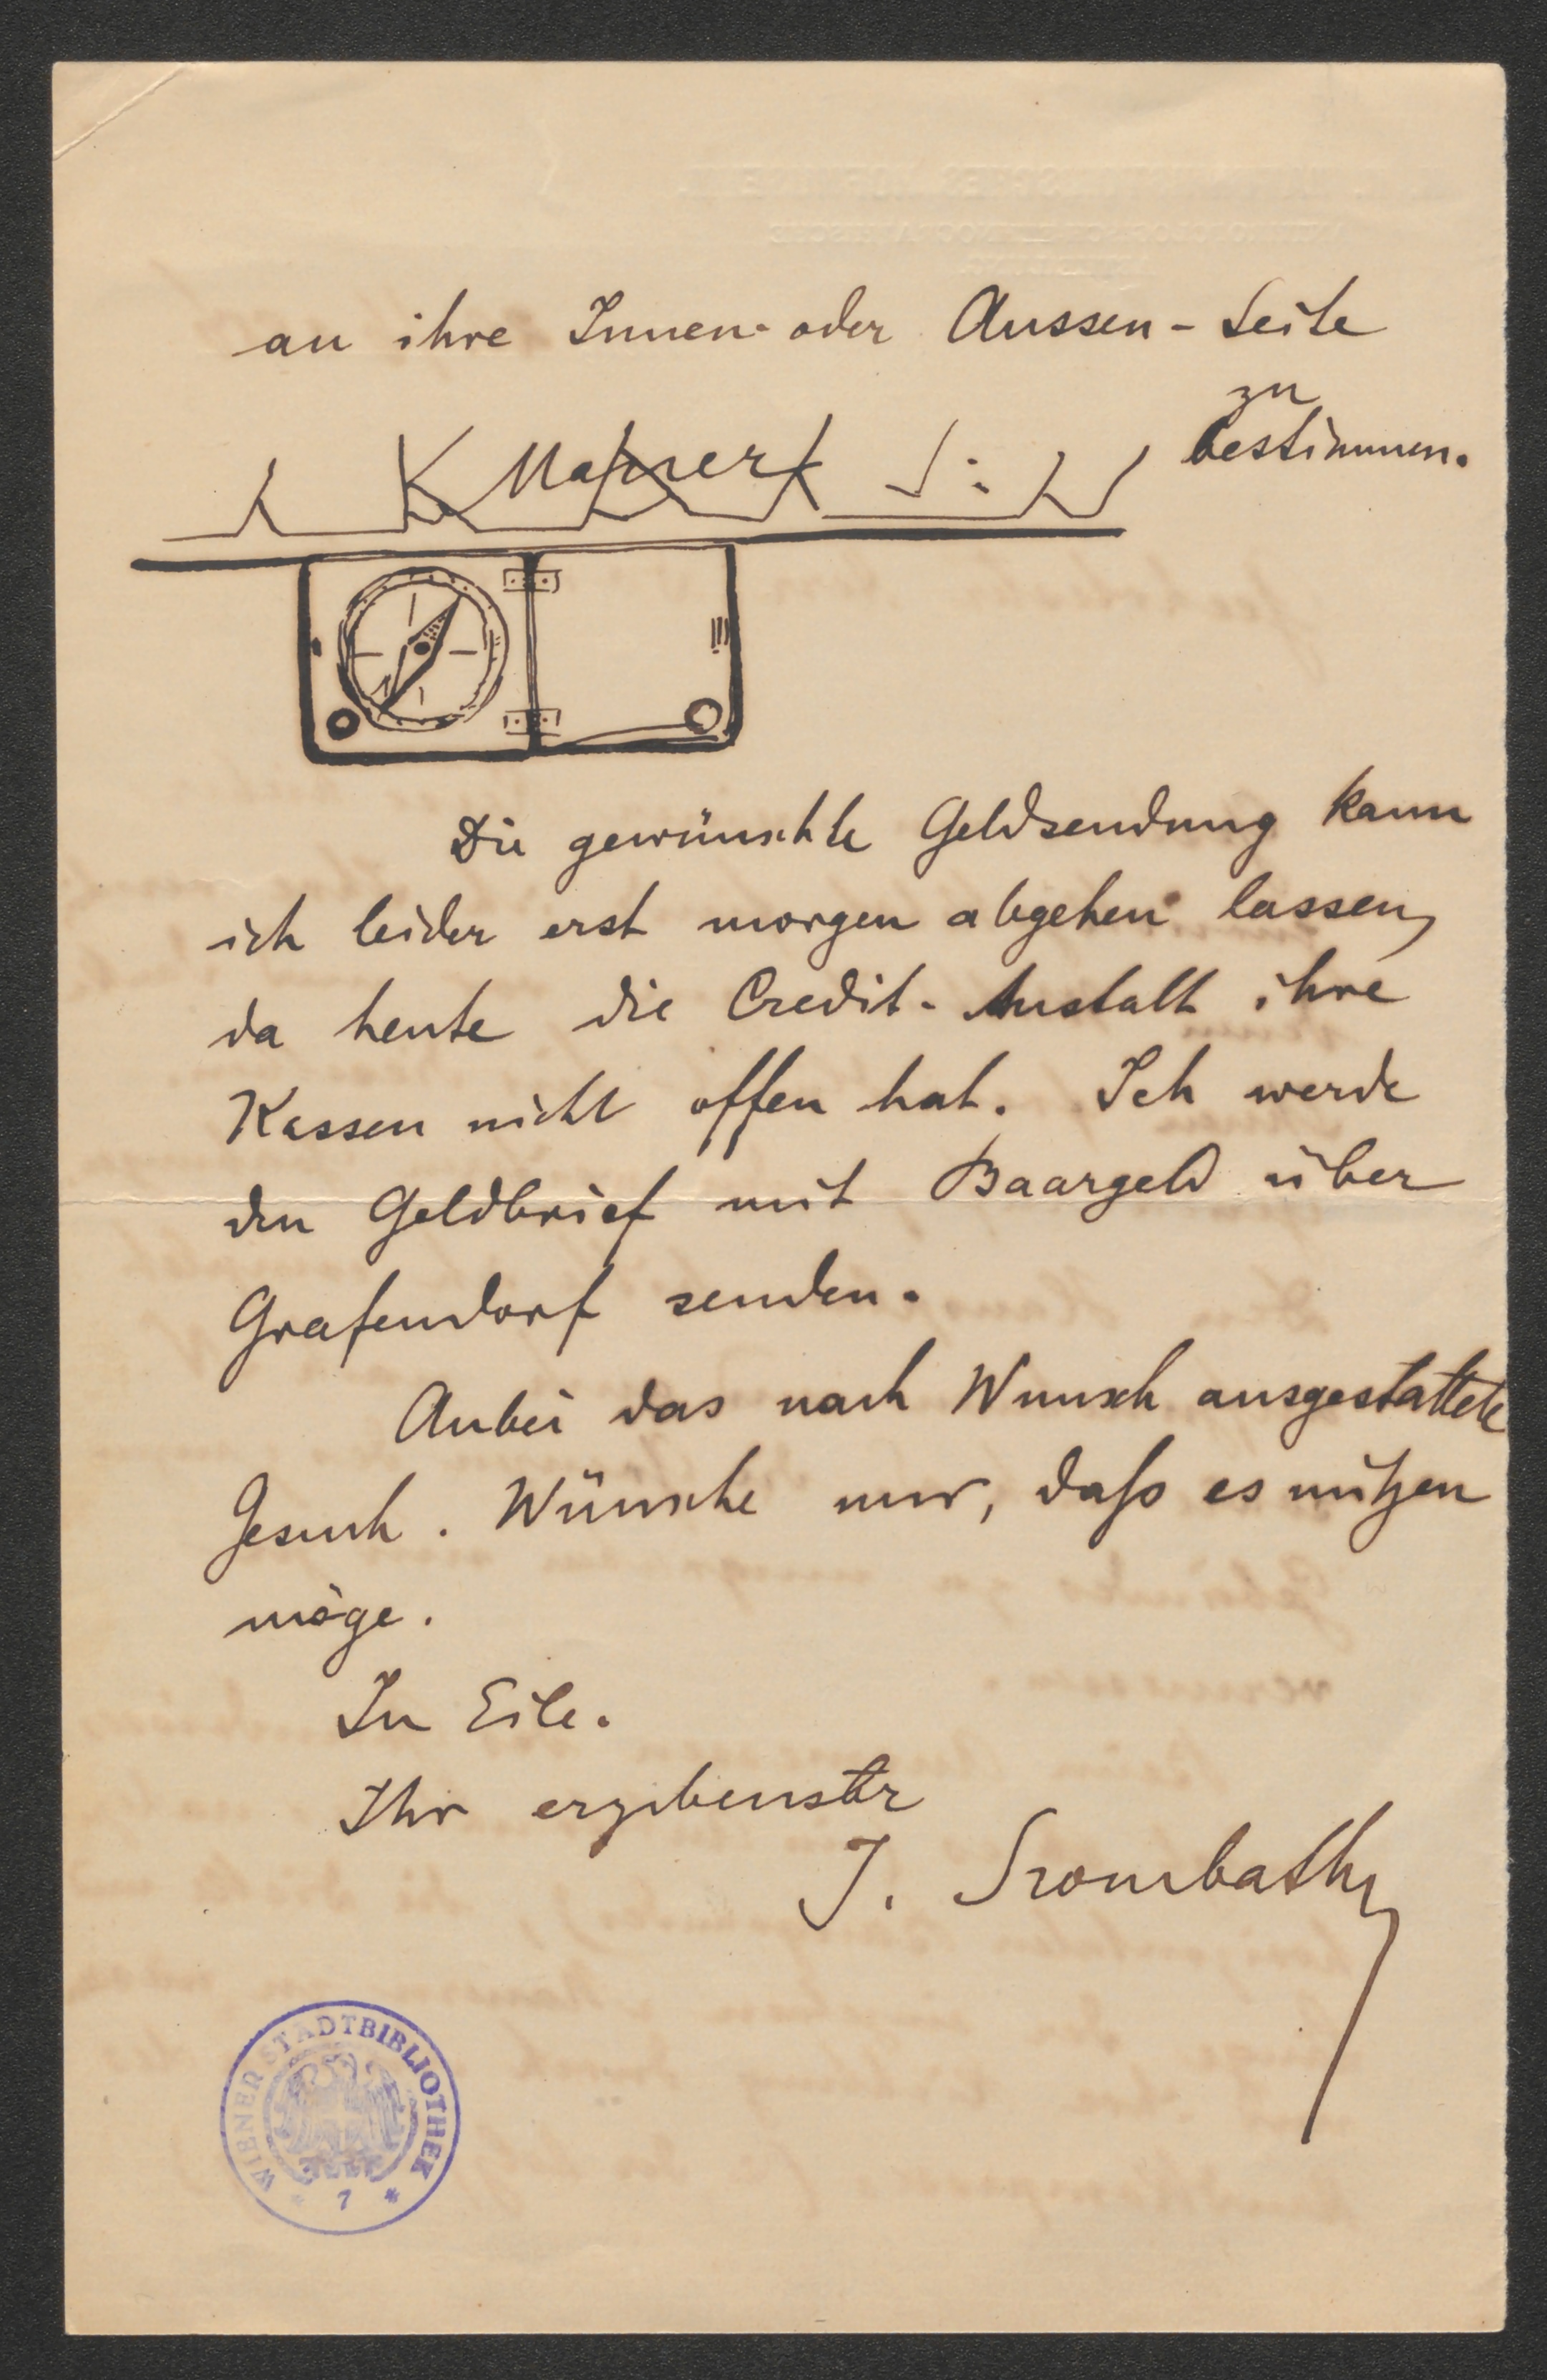 an ihre Innen- oder Aussen-Seite
zu
bestimmen.
Mauer
Die gewünschte Geldsendung kann
ich leider erst morgen abgehen lassen,
da heute die Credit-Anstalt ihre
Kassen nicht offen hat. Ich werde
den Geldbrief mit Baargeld über
Grafendorf senden.
Anbei das nach Wunsch ausgestattete
Gesuch. Wünsche nur, daß es nützen
möge.
In Eile.
Ihr ergebenster
J. Szombathy
WIENER STADTBIBLIOTHEK
* 7 *